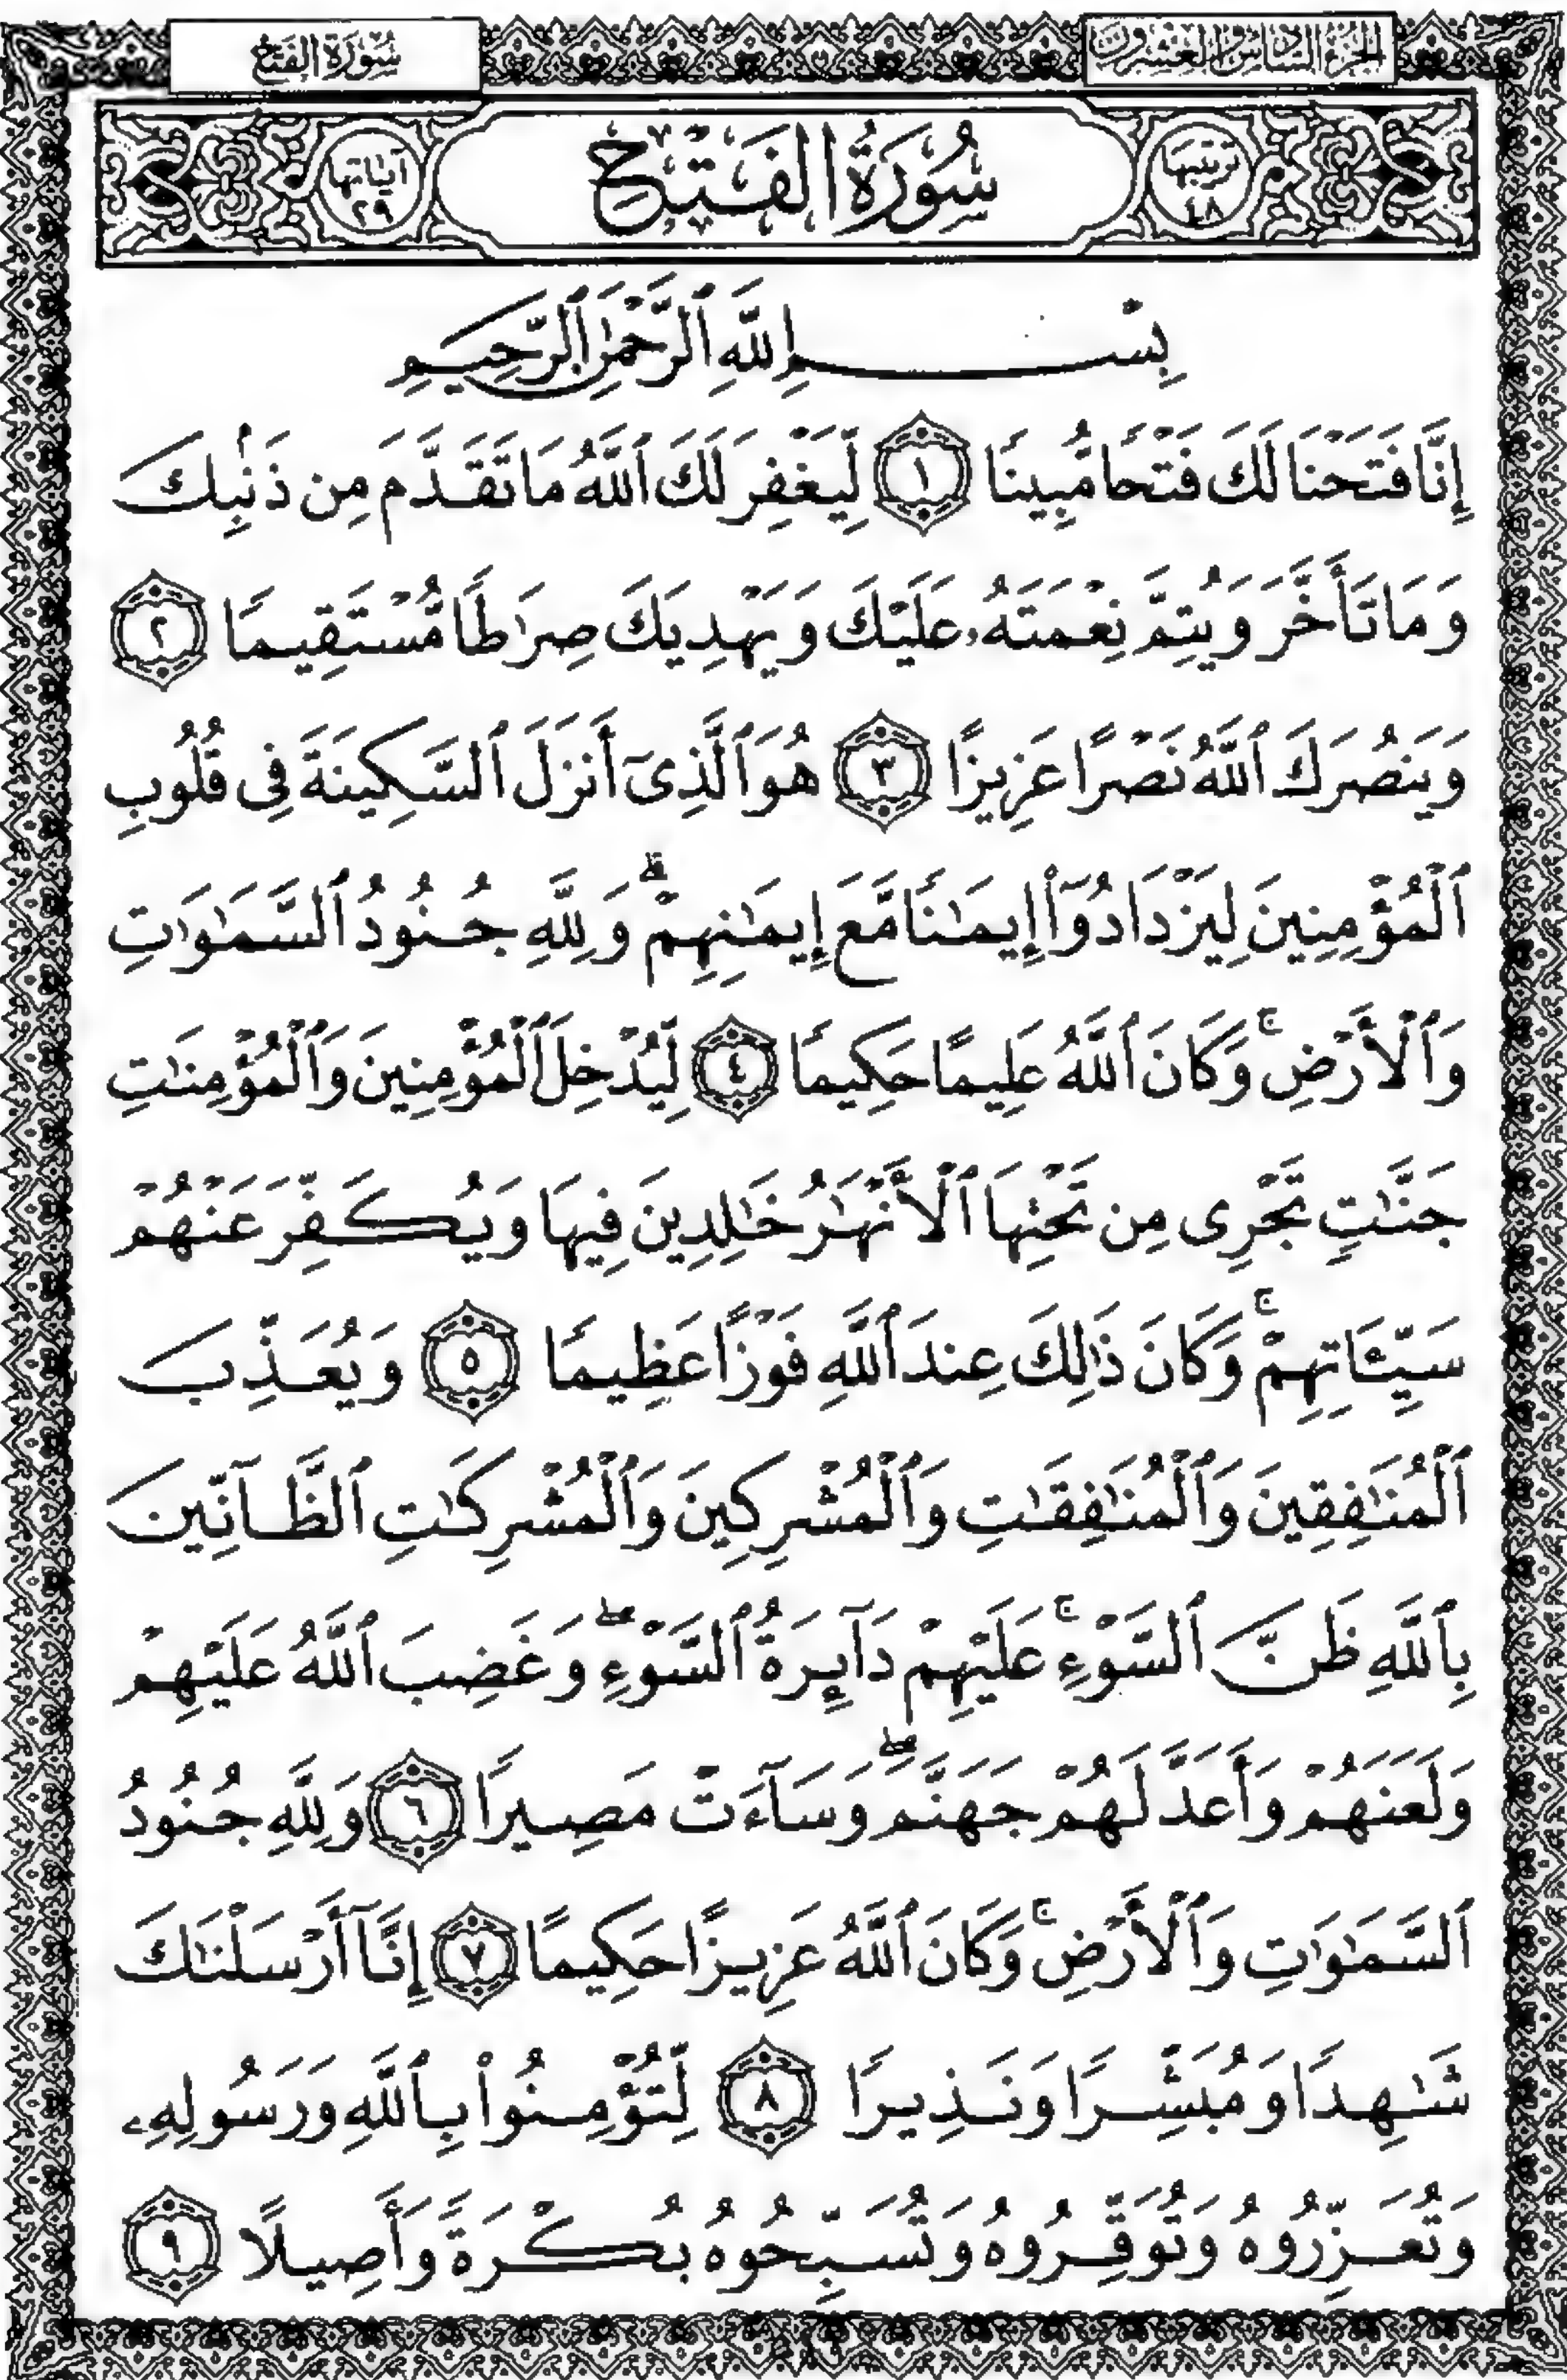 الجزء السادس والعشرون
سُورَةُ الفَتْح
ترتيبها
٤٨
سُورَةُ الفَتْحِ
آياتها
٢٩
بِسْمِ ٱللَّهِ ٱلرَّحْمَٰنِ ٱلرَّحِيمِ
إِنَّا فَتَحْنَا لَكَ فَتْحًا مُّبِينًا ١ لِّيَغْفِرَ لَكَ ٱللَّهُ مَا تَقَدَّمَ مِن ذَنۢبِكَ
وَمَا تَأَخَّرَ وَيُتِمَّ نِعْمَتَهُۥ عَلَيْكَ وَيَهْدِيَكَ صِرَٰطًا مُّسْتَقِيمًا ٢
وَيَنصُرَكَ ٱللَّهُ نَصْرًا عَزِيزًا ٣ هُوَ ٱلَّذِىٓ أَنزَلَ ٱلسَّكِينَةَ فِى قُلُوبِ
ٱلْمُؤْمِنِينَ لِيَزْدَادُوٓا۟ إِيمَٰنًا مَّعَ إِيمَٰنِهِمْ ۗ وَلِلَّهِ جُنُودُ ٱلسَّمَٰوَٰتِ
وَٱلْأَرْضِ ۚ وَكَانَ ٱللَّهُ عَلِيمًا حَكِيمًا ٤ لِّيُدْخِلَ ٱلْمُؤْمِنِينَ وَٱلْمُؤْمِنَٰتِ
جَنَّٰتٍ تَجْرِى مِن تَحْتِهَا ٱلْأَنْهَٰرُ خَٰلِدِينَ فِيهَا وَيُكَفِّرَ عَنْهُمْ
سَيِّـَٔاتِهِمْ ۚ وَكَانَ ذَٰلِكَ عِندَ ٱللَّهِ فَوْزًا عَظِيمًا ٥ وَيُعَذِّبَ
ٱلْمُنَٰفِقِينَ وَٱلْمُنَٰفِقَٰتِ وَٱلْمُشْرِكِينَ وَٱلْمُشْرِكَٰتِ ٱلظَّآنِّينَ
بِٱللَّهِ ظَنَّ ٱلسَّوْءِ ۚ عَلَيْهِمْ دَآئِرَةُ ٱلسَّوْءِ ۖ وَغَضِبَ ٱللَّهُ عَلَيْهِمْ
وَلَعَنَهُمْ وَأَعَدَّ لَهُمْ جَهَنَّمَ ۖ وَسَآءَتْ مَصِيرًا ٦ وَلِلَّهِ جُنُودُ
ٱلسَّمَٰوَٰتِ وَٱلْأَرْضِ ۚ وَكَانَ ٱللَّهُ عَزِيزًا حَكِيمًا ٧ إِنَّآ أَرْسَلْنَٰكَ
شَٰهِدًا وَمُبَشِّرًا وَنَذِيرًا ٨ لِّتُؤْمِنُوا۟ بِٱللَّهِ وَرَسُولِهِۦ
وَتُعَزِّرُوهُ وَتُوَقِّرُوهُ وَتُسَبِّحُوهُ بُكْرَةً وَأَصِيلًا ٩